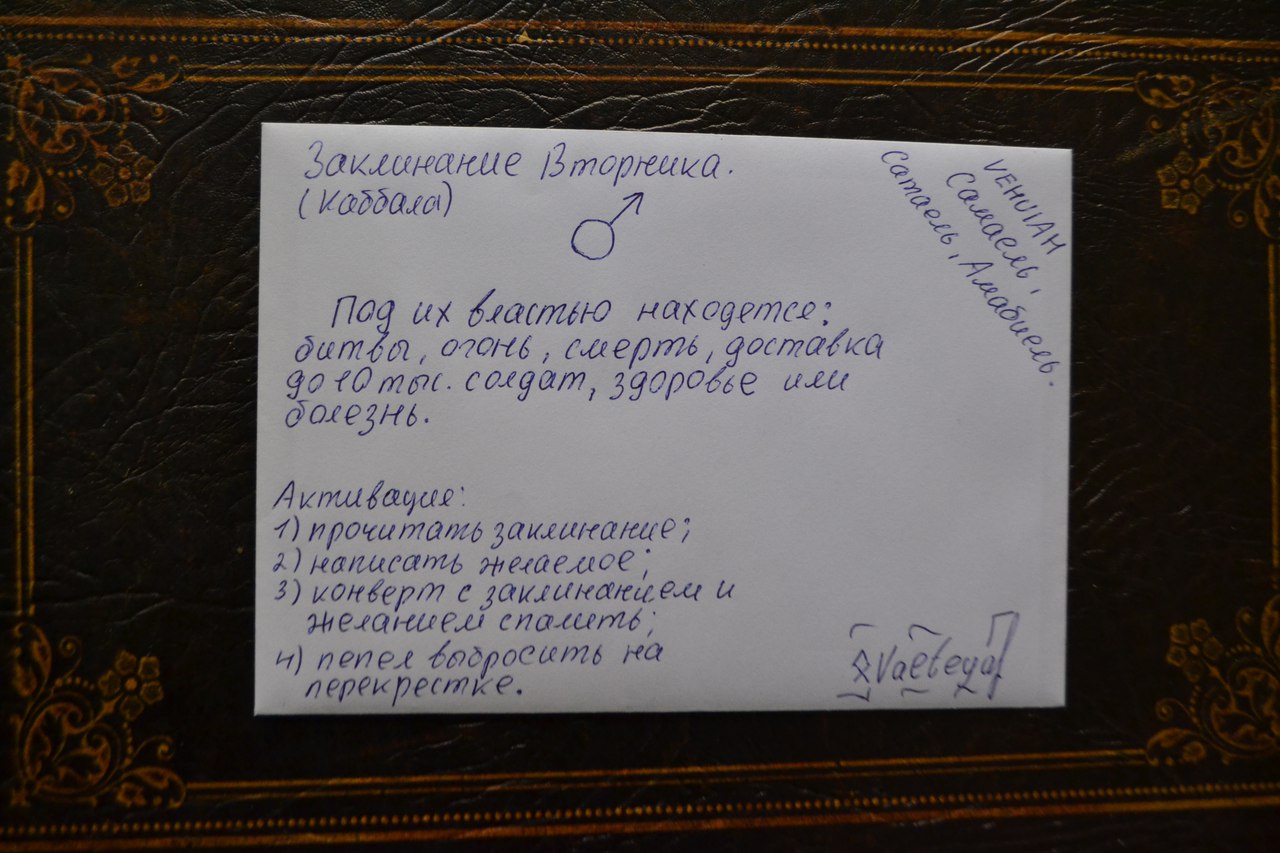 Заклинание Вторника.
(Каббала)
VEHUIAH
Самаель,
Сатаель, Амабиель.
Под их властью находется:
битвы, огонь, смерть, доставка
до 10 тыс. солдат, здоровье или
болезнь.
Активация:
1) прочитать заклинание;
2) написать желаемое;
3) конверт с заклинанием и
желанием спалить;
4) пепел выбросить на
перекрестке.